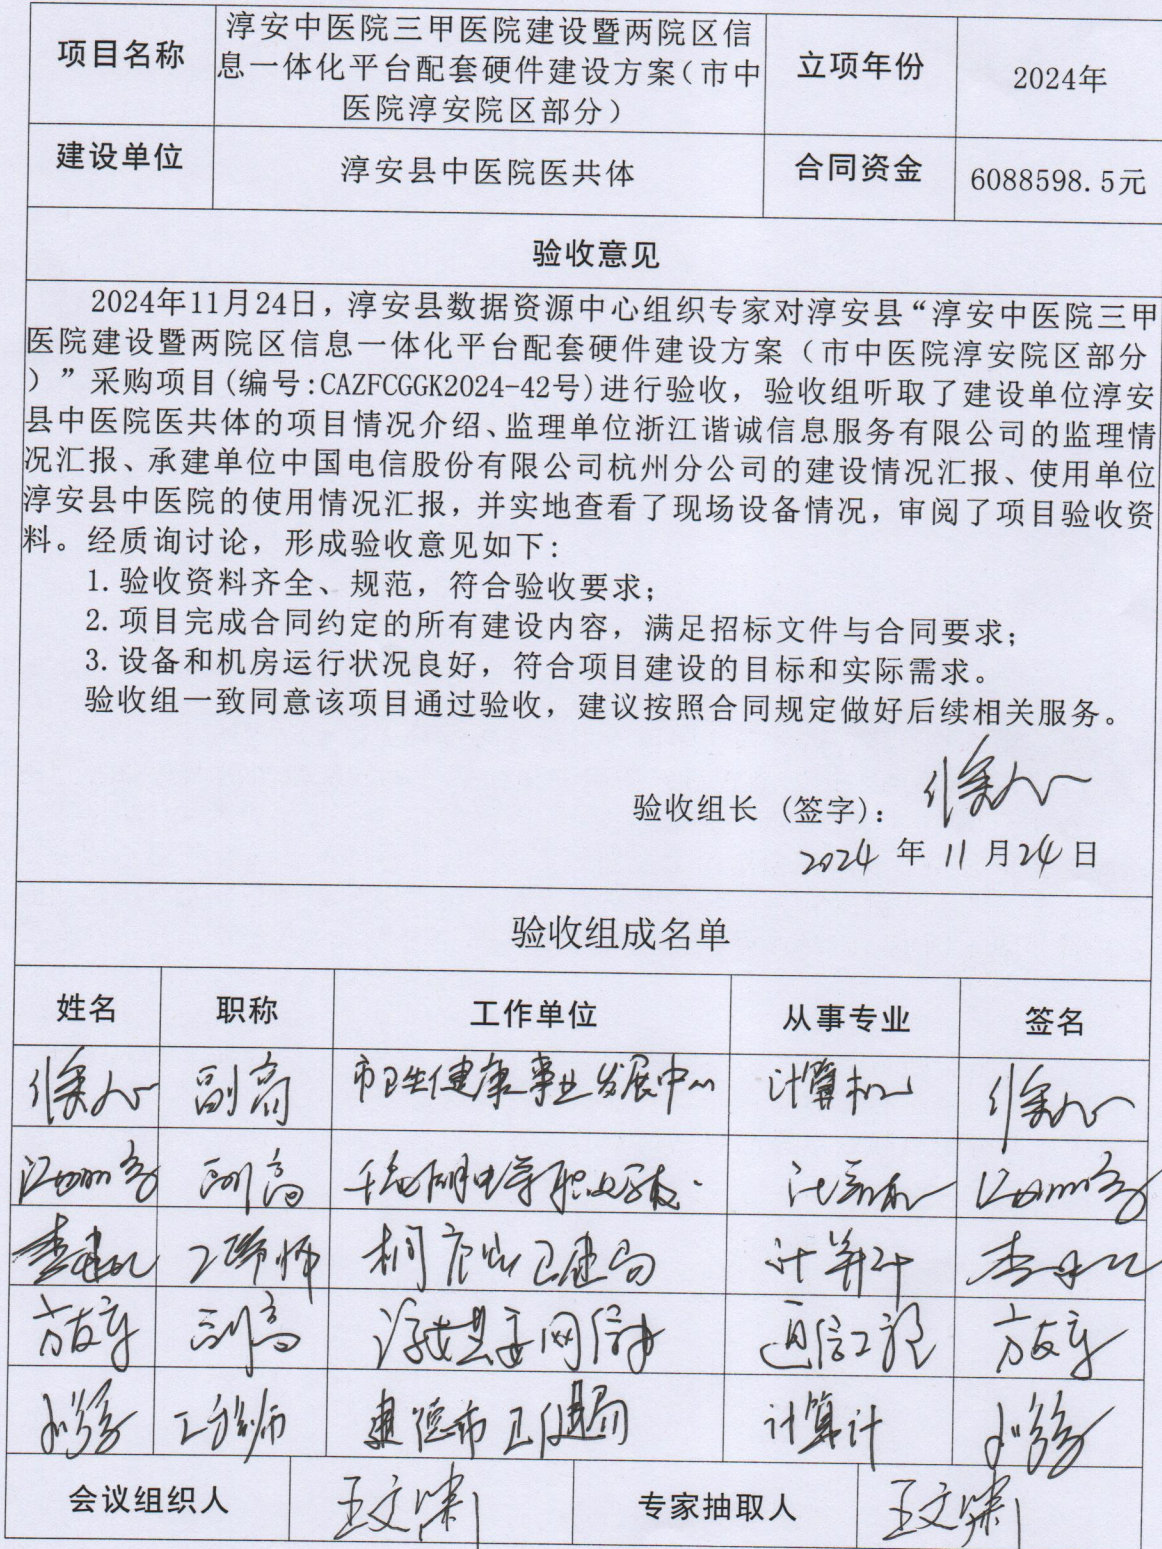 项目名称
淳安中医院三甲医院建设暨两院区信
息一体化平台配套硬件建设方案(市中
医院淳安院区部分)
立项年份
2024年
建设单位
淳安县中医院医共体
合同资金
6088598.5元
验收意见
2024年11月24日，淳安县数据资源中心组织专家对淳安县“淳安中医院三甲
医院建设暨两院区信息一体化平台配套硬件建设方案（市中医院淳安院区部分
）”采购项目(编号:CAZFCGGK2024-42号)进行验收，验收组听取了建设单位淳安
县中医院医共体的项目情况介绍、监理单位浙江谐诚信息服务有限公司的监理情
况汇报、承建单位中国电信股份有限公司杭州分公司的建设情况汇报、使用单位
淳安县中医院的使用情况汇报，并实地查看了现场设备情况，审阅了项目验收资
料。经质询讨论，形成验收意见如下：
1.验收资料齐全、规范，符合验收要求；
2.项目完成合同约定的所有建设内容，满足招标文件与合同要求；
3.设备和机房运行状况良好，符合项目建设的目标和实际需求。
验收组一致同意该项目通过验收，建议按照合同规定做好后续相关服务。
验收组长（签字）：
2024 年 11 月 24 日
验收组成名单
姓名 职称 工作单位 从事专业 签名
副高 市卫生健康事业发展中心 计算机
副高 计算机
工程师 卫健局
方友 副高 淳安县委网信办 通信工程 方友
工程师 建德市卫健局 计算计
会议组织人 王文啸 专家抽取人 王文啸